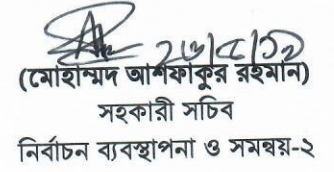 ২৩/৫/১৯
(মোহাম্মদ আশফাকুর রহমান)
সহকারী সচিব
নির্বাচন ব্যবস্থাপনা ও সমন্বয়-২